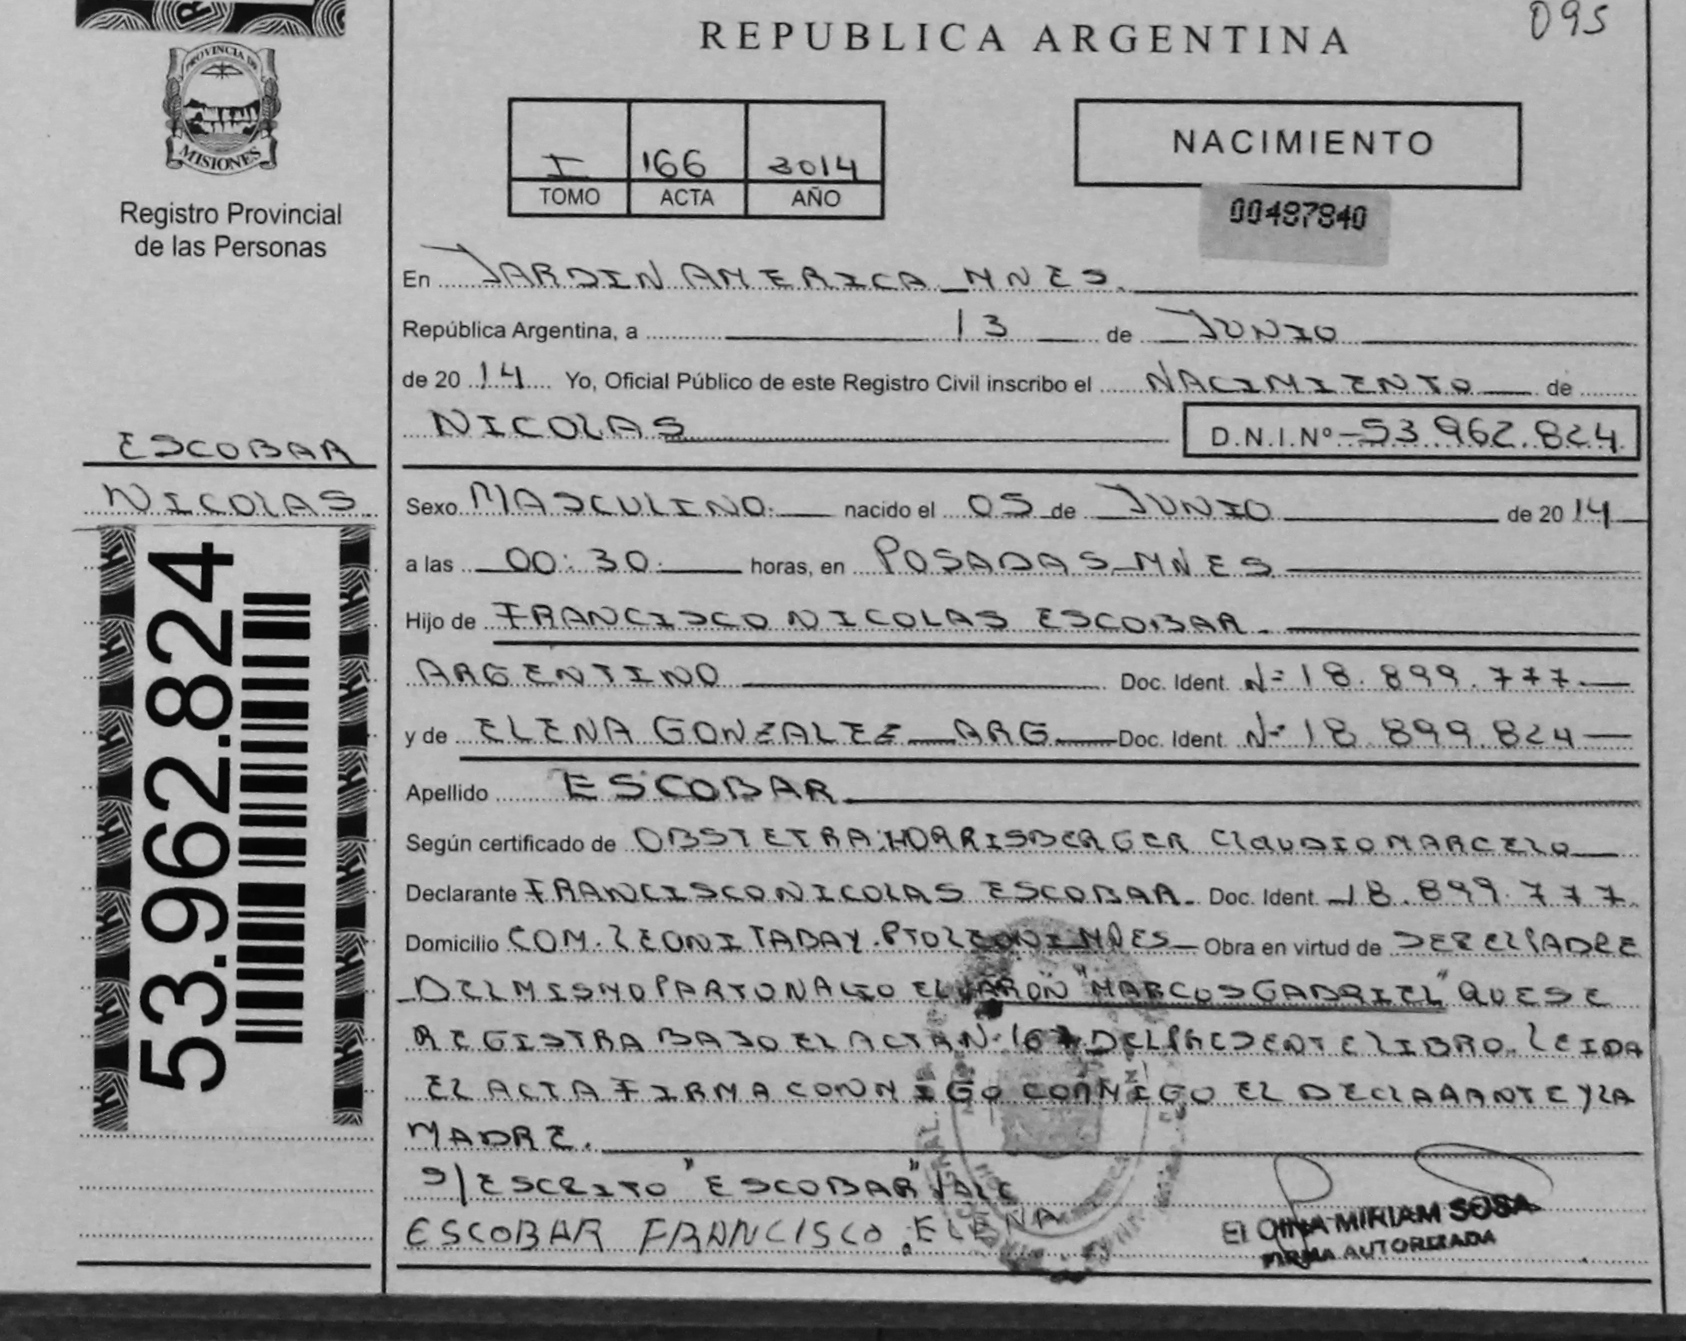 REPUBLICA ARGENTINA
095
PROVINCIA DE
MISIONES
Registro Provincial
de las Personas
I 166 2014
TOMO ACTA AÑO
NACIMIENTO
00487840
En JARDIN AMERICA MNES.
República Argentina, a 13 de JUNIO
de 2014 Yo, Oficial Público de este Registro Civil inscribo el NACIMIENTO de
NICOLAS D.N.I.Nº 53.962.824.
ESCOBAR
NICOLAS
53.962.824
Sexo MASCULINO. nacido el 05 de JUNIO de 2014
a las 00:30. horas, en POSADAS MNES
Hijo de FRANCISCO NICOLAS ESCOBAR.
ARGENTINO Doc. Ident. Nº 18.899.777.
y de ELENA GONZALEZ ARG Doc. Ident. Nº 18.899.824
Apellido ESCOBAR
Según certificado de OBSTETRA: HORRISBERGER CLAUDIO MARCELO
Declarante FRANCISCO NICOLAS ESCOBAR. Doc. Ident. 18.899.777.
Domicilio COM. LEONI TABAY. PTO LEONI MNES Obra en virtud de SER EL PADRE
DEL MISMO PARTO NACIO EL VARON "MARCOS GABRIEL" QUE SE
REGISTRA BAJO EL ACTA Nº 167 DEL PRESENTE LIBRO. LEIDA
EL ACTA FIRMA CONMIGO CONMIGO EL DECLARANTE Y LA
MADRE.
S/ESCRITO "ESCOBAR" VALE
ESCOBAR FRANCISCO. ELENA
MIRIAM SOSA
FIRMA AUTORIZADA